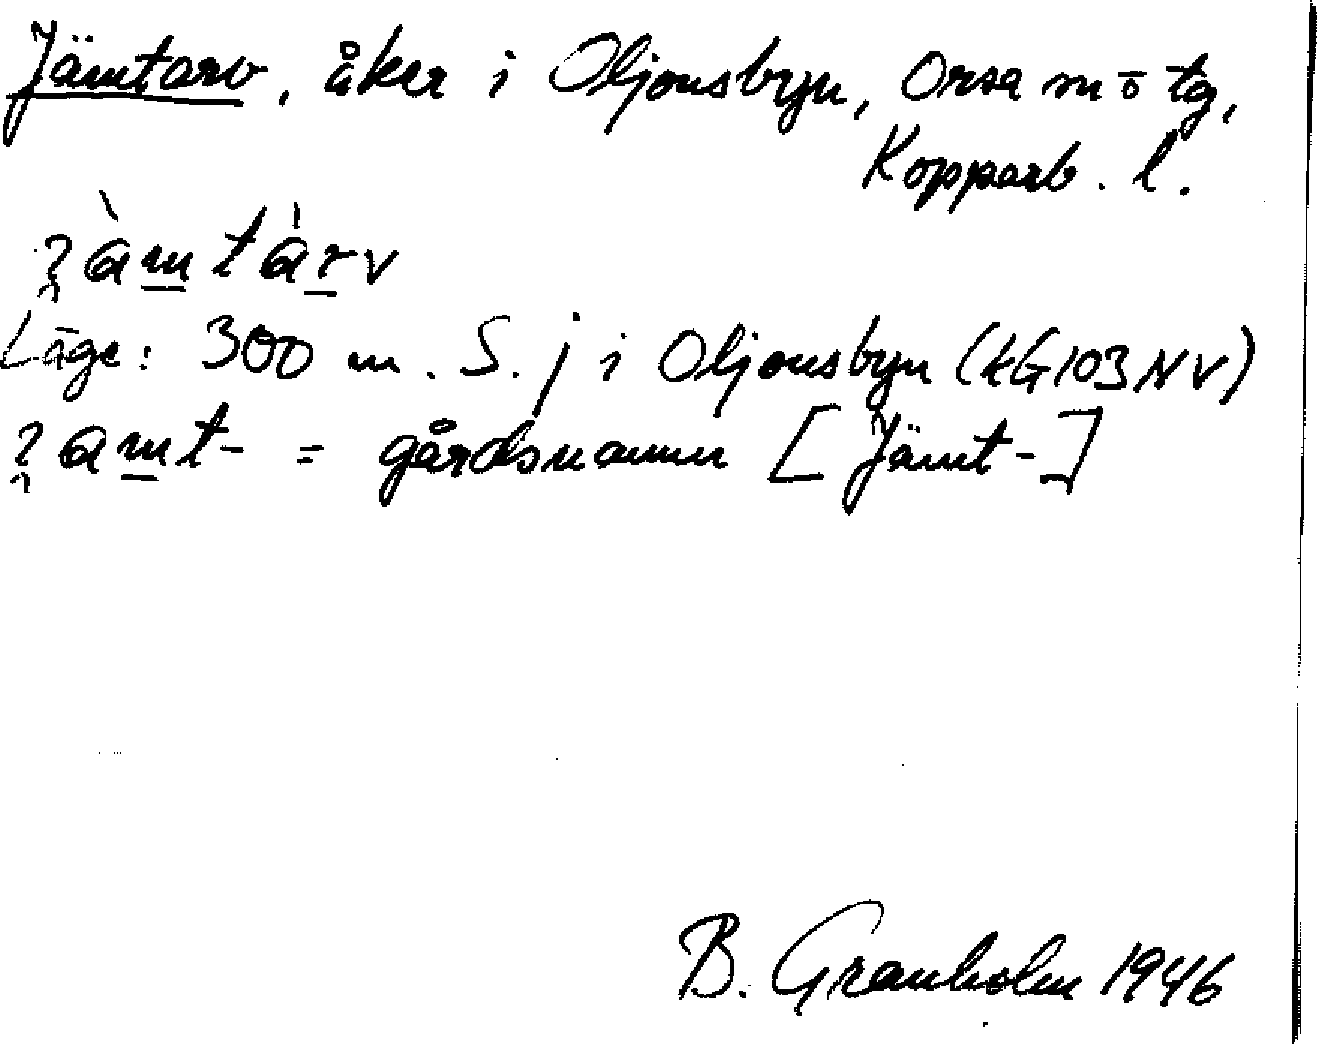 Jämtarv, åker i Oljonsbyn, Orsa m o tg,
Kopparb. l.
ʒàmtàrv
Läge: 300 m. S. j i Oljonsbyn (kG103NV)
ʒamt- = gårdsnamn [Jämt-]
B. Granholm 1946